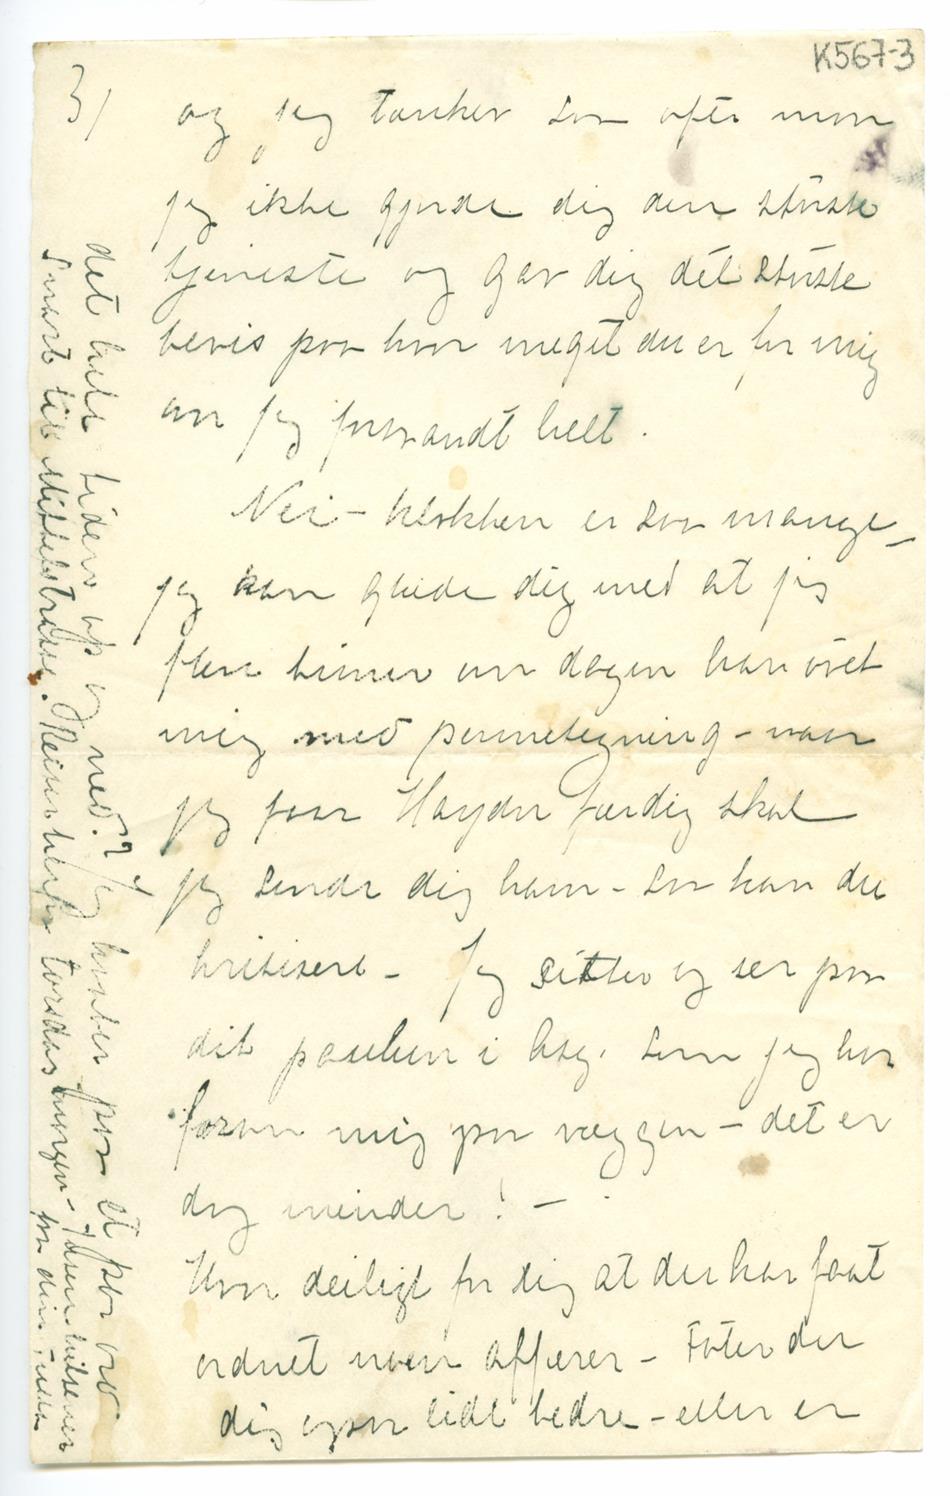 K567-3
3/
og jeg tænker saa ofte mon
jeg ikke gjorde dig den største
tjeneste og gav dig det største
bevis paa hvor meget du er for mig
om jeg forsvandt helt.
Nei – klokken er saa mange –
jeg kan glæde dig med at jeg
flere timer om dagen har øvet
mig med pennetegning – naar
jeg faar Haydn færdig skal
jeg sende dig ham – saa kan du
kritisere – Jeg sitter og ser paa
dit i som jeg har
foran mig paa væggen – det er
dog minder! –
Hvor deiligt for dig at du har faaet
ordnet noen affærer – Føler du
dig ogsaa lidt bedre – eller er
det hele tiden op og ned? Jeg venter paa et par ord
snart til Mittelstrasse. Reiser herfra torsdag morgen – hilsener
fra din